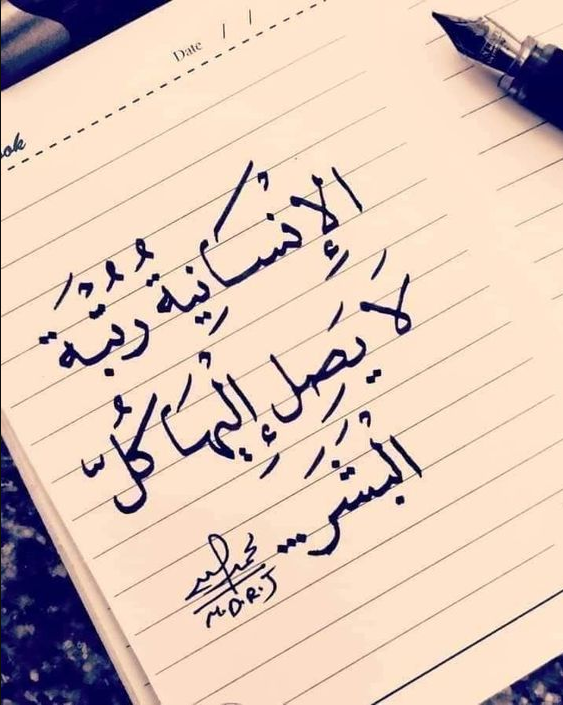 Date / /
ok
الإِنْسَانِيةُ رُتْبَة
لَا يَصِل إِليْهَا كُلّ
الْبَشَر...
M.D.R.J